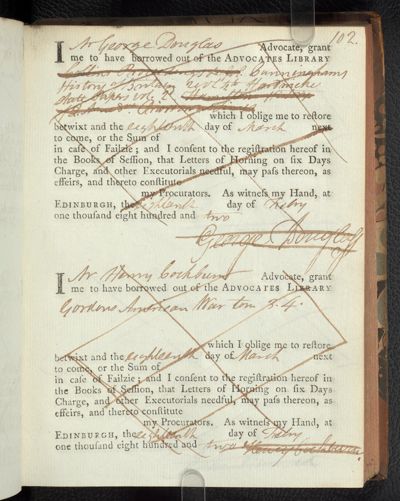 102.
I Mr George Douglas Advocate, grant
me to have borrowed out of the ADVOCATES LIBRARY
Cunninghams
History of Britain 2 vols Hardwicke
State Papers vol
which I oblige me to restore
betwixt and the eighteenth day of March next
to come, or the Sum of
in case of Failzie; and I consent to the registration hereof in
the Books of Session, that Letters of Horning on six Days
Charge, and other Executorials needful, may pass thereon, as
effeirs, and thereto constitute
my Procurators. As witness my Hand, at
EDINBURGH, the eighteenth day of Febry
one thousand eight hundred and two
George Douglas
I Mr Henry Cockburn Advocate, grant
me to have borrowed out of the ADVOCATES LIBRARY
Gordons American War tom 3. 4.
which I oblige me to restore
betwixt and the eighteenth day of March next
to come, or the Sum of
in case of Failzie; and I consent to the registration hereof in
the Books of Session, that Letters of Horning on six Days
Charge, and other Executorials needful, may pass thereon, as
effeirs, and thereto constitute
my Procurators. As witness my Hand, at
EDINBURGH, the eighteenth day of Febry
one thousand eight hundred and two Henry Cockburn